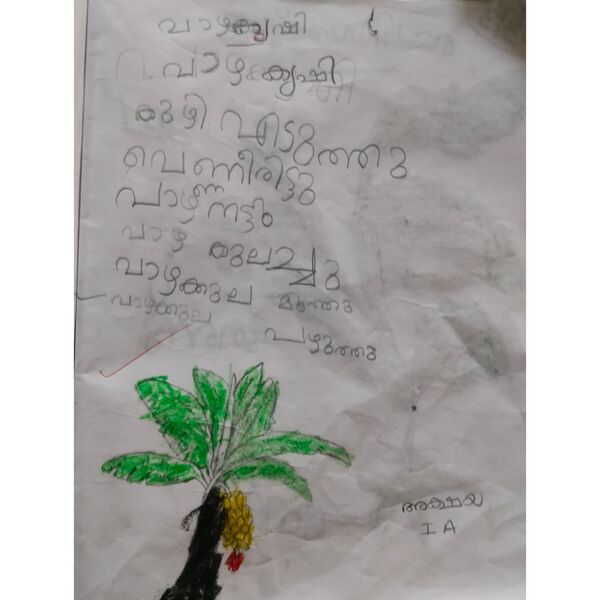 വാഴകൃഷി
വാഴകൃഷി
കുഴി എടുത്തു
വെണ്ണീരിട്ടു
വാഴ നട്ടു
വാഴ കുലച്ചു
വാഴക്കുല മൂത്തു
വാഴക്കുല
പഴുത്തു
അക്ഷയ
I A